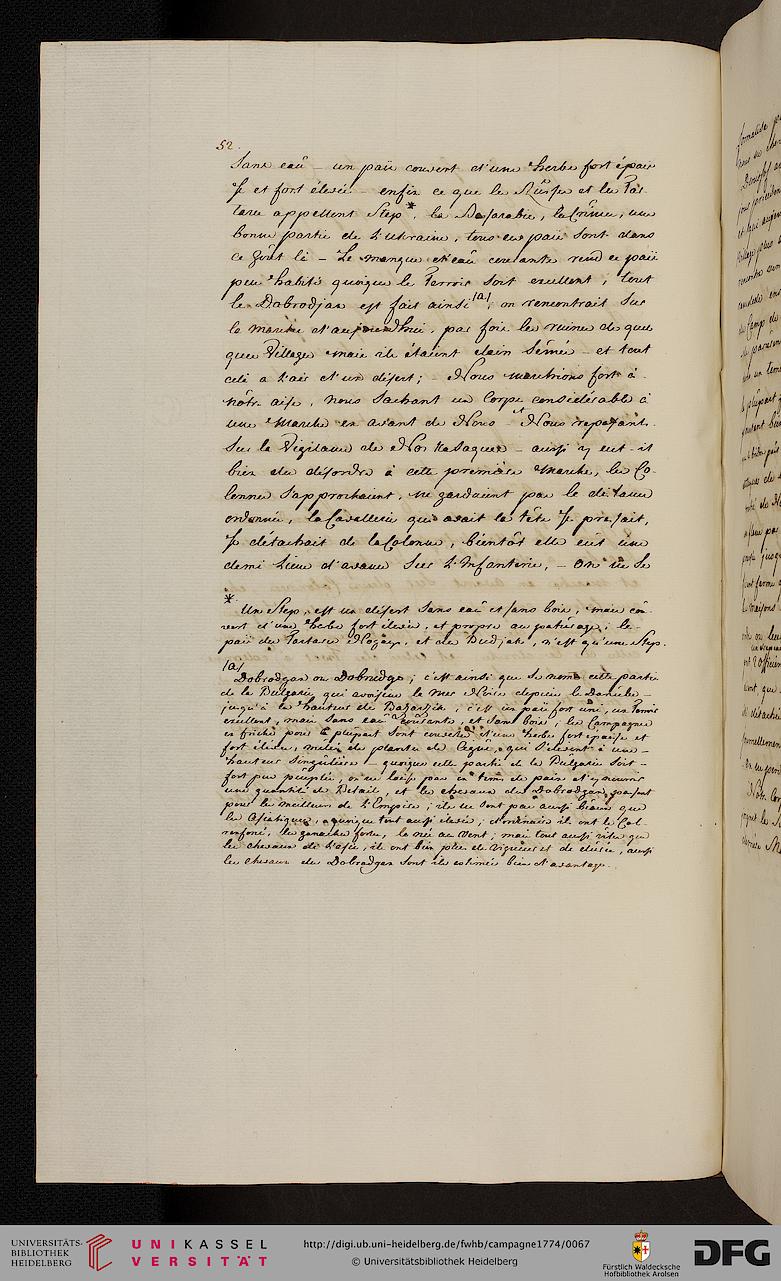 52.
Sans eaû – un païs couvert d'une Herbe fort épais
se et fort élevée – enfin ce que les Russes et les Tar
tares appellent Step*. la Bessarabie, la Crimée, une
bonne partie de l'Ukraine, tous ces païs sont dans
ce goût là – Le manque d'eaû courante rend ce païs
peu habité quoique le Terroir soit excellent, tout
le Dobrodjan est fait ainsi /a/; on rencontrait sur
la marche d'aujourdhui, par fois les ruines de quel
ques Villages mais ils étaient clair Semés – et tout
cela a l'air d'un désert; – Nous marchions fort à
nôtre aise, nous sachant un Corps considérable à
une Marche en avant de Nous et Nous reposant
sur la Vigilance de Nos Kasaques – aussi y eut-il
bien du désordre à cette première Marche, les Co
lonnes s'approchaient, ne gardaient pas les distances
ordonnées, la Cavallerie qui avait la tête se pressait,
se détachait de la Colonne, bientôt elle eût une
demi Lieue d'avance sur l'Infanterie, – On ne se
* Un Step, est un désert sans eaû et sans bois, mais cou
vert d'une herbe fort élevée, et propre au paturage; le
païs des Tartares Nogays, et du Budjak, n'est qu'une Step.
/a/
Dobrodgan ou Dobrudge; c'est ainsi que se nome cette partie
de la Bulgarie qui avoisine la Mer Noire depuis le Danube –
jusqu'à la hauteur de Bazardjik, c'est un païs fort uni, un Terroir
excellent, mais sans eaû courante, et sans bois; les Campagnes
en friche pour la plûpart sont couvertes d'une herbe fort épaisse et
fort élevée, melée de plantes de Cigüe, qui s'élevent à une –
hauteur singulière – quoique cette partie de la Bulgarie soit –
fort peu peuplée, on ne laisse pas en tems de paix d'y nourrir
une quantité de Bétail, et les chevaux du Dobrodgan, passent
pour les meilleurs de l'Empire; ils ne sont pas aussi beaux que
les Asiatiques, quoique tout aussi élevés; d'ordinaire ils ont le Col –
renfoncé, les ganaches fortes, le née au Vent; mais tout aussi vites que
les chevaux de l'Asie, ils ont bien plus de vigueur et de durée, aussi
les chevaux du Dobrodgan sont ils estimés bien d'avantage.
UNIVERSITÄTS-
BIBLIOTHEK
HEIDELBERG
UNIKASSEL
VERSITÄT
http://digi.ub.uni-heidelberg.de/fwhb/campagne1774/0067
© Universitätsbibliothek Heidelberg
Fürstlich Waldecksche
Hofbibliothek Arolsen
DFG